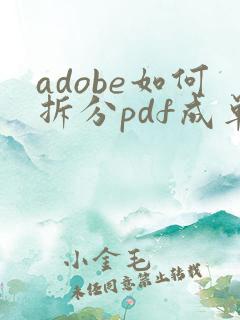 adobe如何
拆分pdf成单
小金毛
未经同意禁止转载